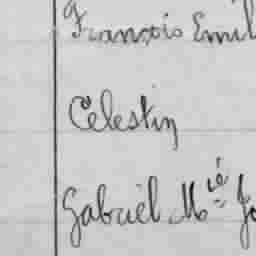 François Emil
Celestin
Gabriel M.ié Jo